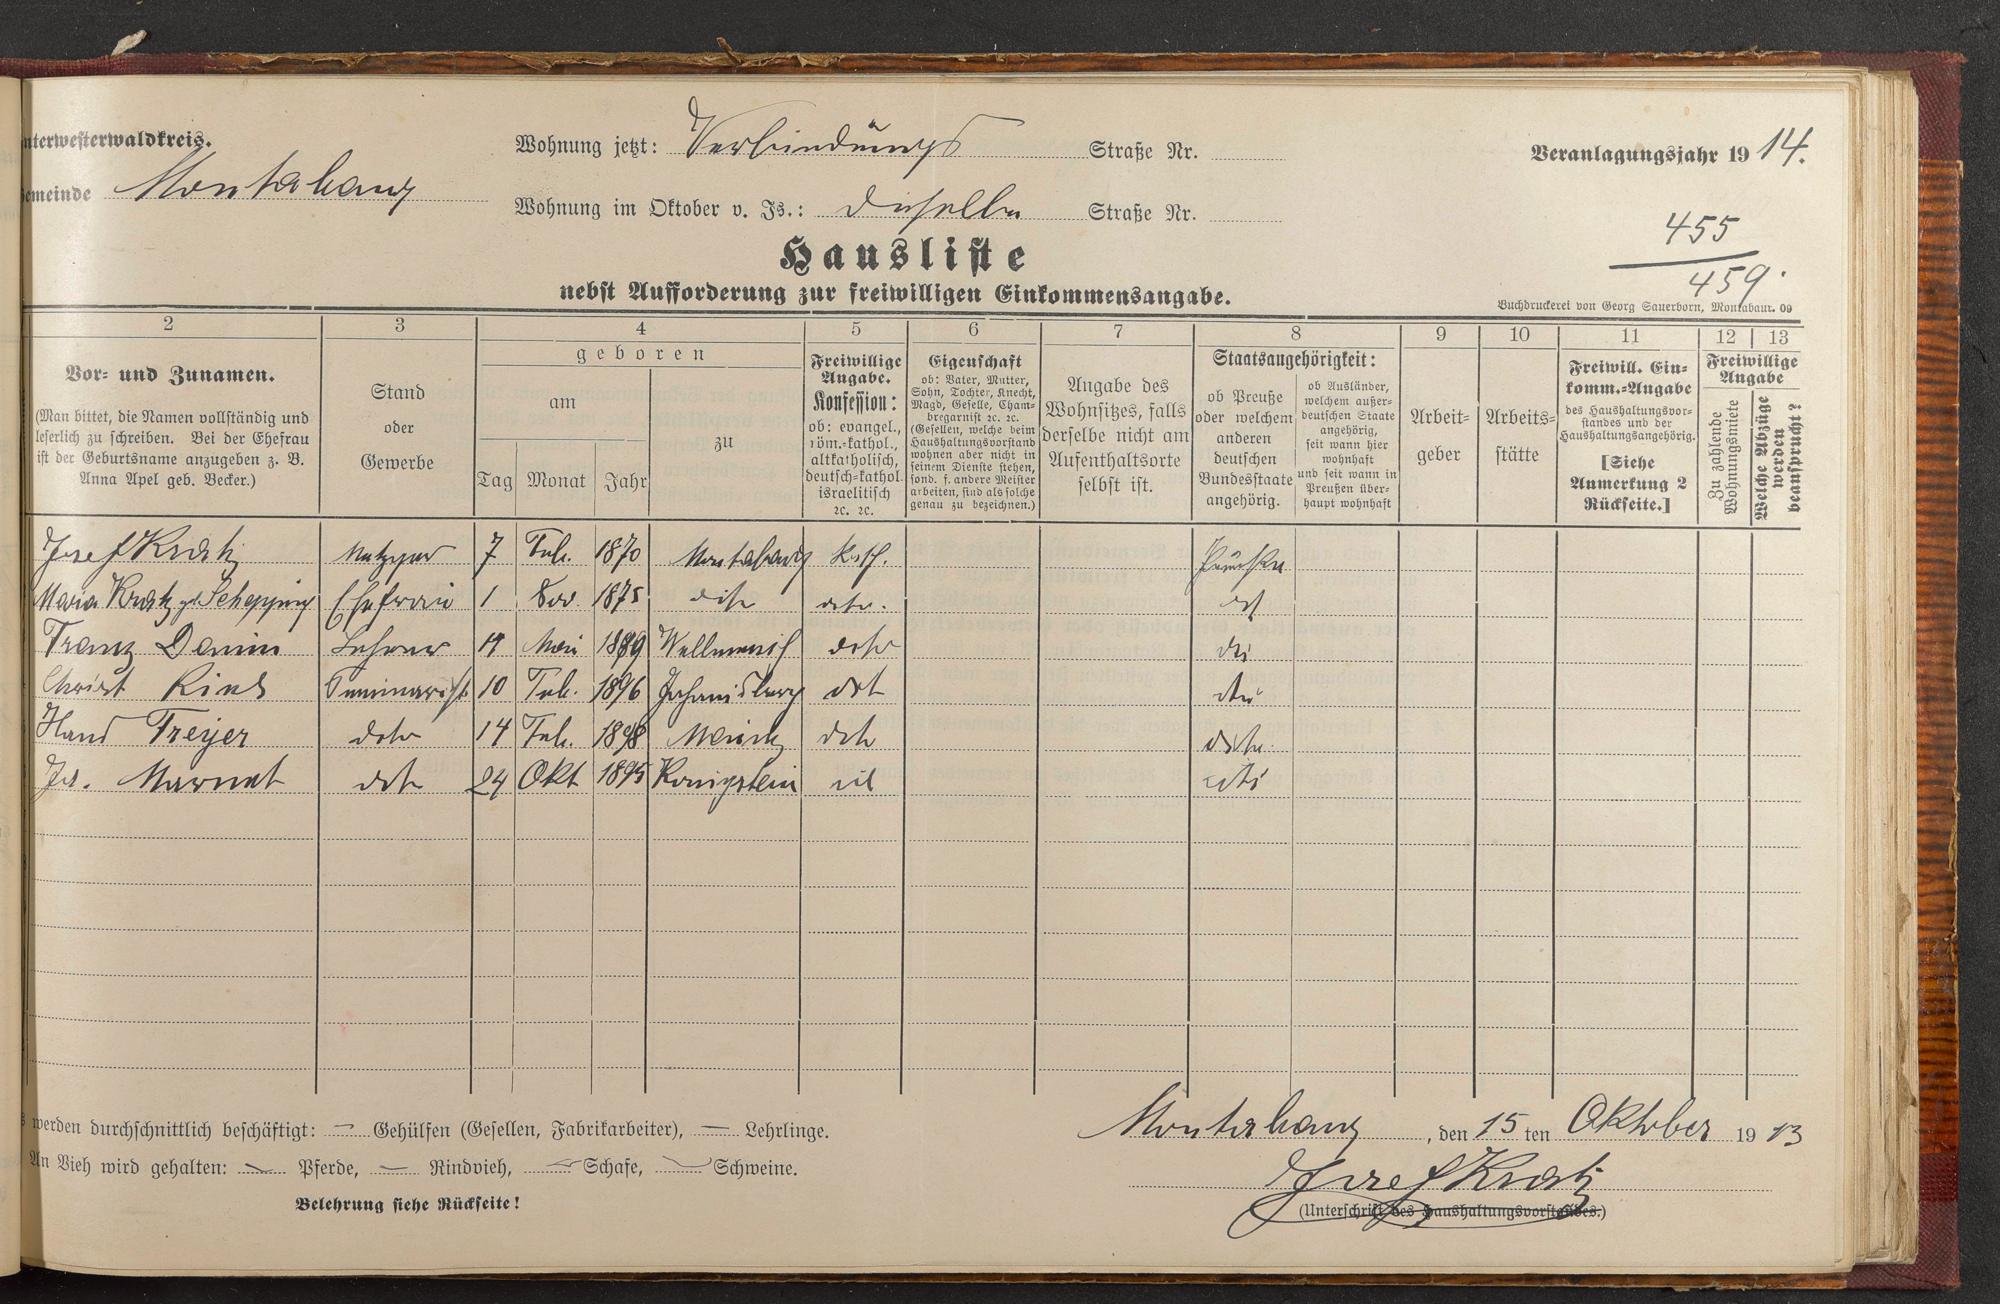 nterwesterwaldkreis.
Wohnung jetzt: Verbindungs Straße Nr.
Veranlagungsjahr 1914.
emeinde Montabaur
Wohnung im Oktober v. Js.: dieselbe Straße Nr.
455
459.
Hausliste
nebst Aufforderung zur freiwilligen Einkommensangabe.
Buchdruckerei von Georg Sauerborn, Montabaur. 09
2 3 4 5 6 7 8 9 10 11 12 13
Vor- und Zunamen.
(Man bittet, die Namen vollständig und
leserlich zu schreiben. Bei der Ehefrau
ist der Geburtsname anzugeben z. B.
Anna Apel geb. Becker.)
Stand
oder
Gewerbe
geboren
am
Tag Monat Jahr
zu
Freiwillige
Angabe.
Konfession:
ob: evangel.,
röm.-kathol.,
altkatholisch,
deutsch-kathol.
israelitisch
ꝛc. ꝛc.
Eigenschaft
ob: Vater, Mutter,
Sohn, Tochter, Knecht,
Magd, Geselle, Cham-
bregarnist ꝛc. ꝛc.
(Gesellen, welche beim
Haushaltungsvorstand
wohnen aber nicht in
seinem Dienste stehen,
sond. f. andere Meister
arbeiten, sind als solche
genau zu bezeichnen.)
Angabe des
Wohnsitzes, falls
derselbe nicht am
Aufenthaltsorte
selbst ist.
Staatsangehörigkeit:
ob Preuße
oder welchem
anderen
deutschen
Bundesstaate
angehörig.
ob Ausländer,
welchem außer-
deutschen Staate
angehörig,
seit wann hier
wohnhaft
und seit wann in
Preußen über-
haupt wohnhaft
Arbeit-
geber
Arbeits-
stätte
Freiwill. Ein-
komm.-Angabe
des Haushaltungsvor-
standes und der
Haushaltungsangehörig.
[Siehe
Anmerkung 2
Rückseite.]
Freiwillige
Angabe
Zu zahlende
Wohnungsmiete
Welche Abzüge
werden
beansprucht?
Josef Kratz Metzger 7 Feb. 1870 Montabaur kath. Preuße
Maria Kratz geb. Schepping Ehefrau 1 Nov. 1875 dito dito. dto
Franz Damm Lehrer 19 Mai 1889 Wellmich dito dto
Christ Ries Seminarist 10 Feb. 1896 Johannisberg dto dto
Hans Freyer dito 14 Feb. 1898 dto dito
Jos. Marnet dto 24 Okt 1895 Königstein dto
s werden durchschnittlich beschäftigt: — Gehülfen (Gesellen, Fabrikarbeiter), — Lehrlinge.
An Vieh wird gehalten: — Pferde, — Rindvieh, — Schafe, — Schweine.
Belehrung siehe Rückseite!
Montabaur, den 15 ten Oktober 1913
Josef Kratz
(Unterschrift des Haushaltungsvorstandes.)